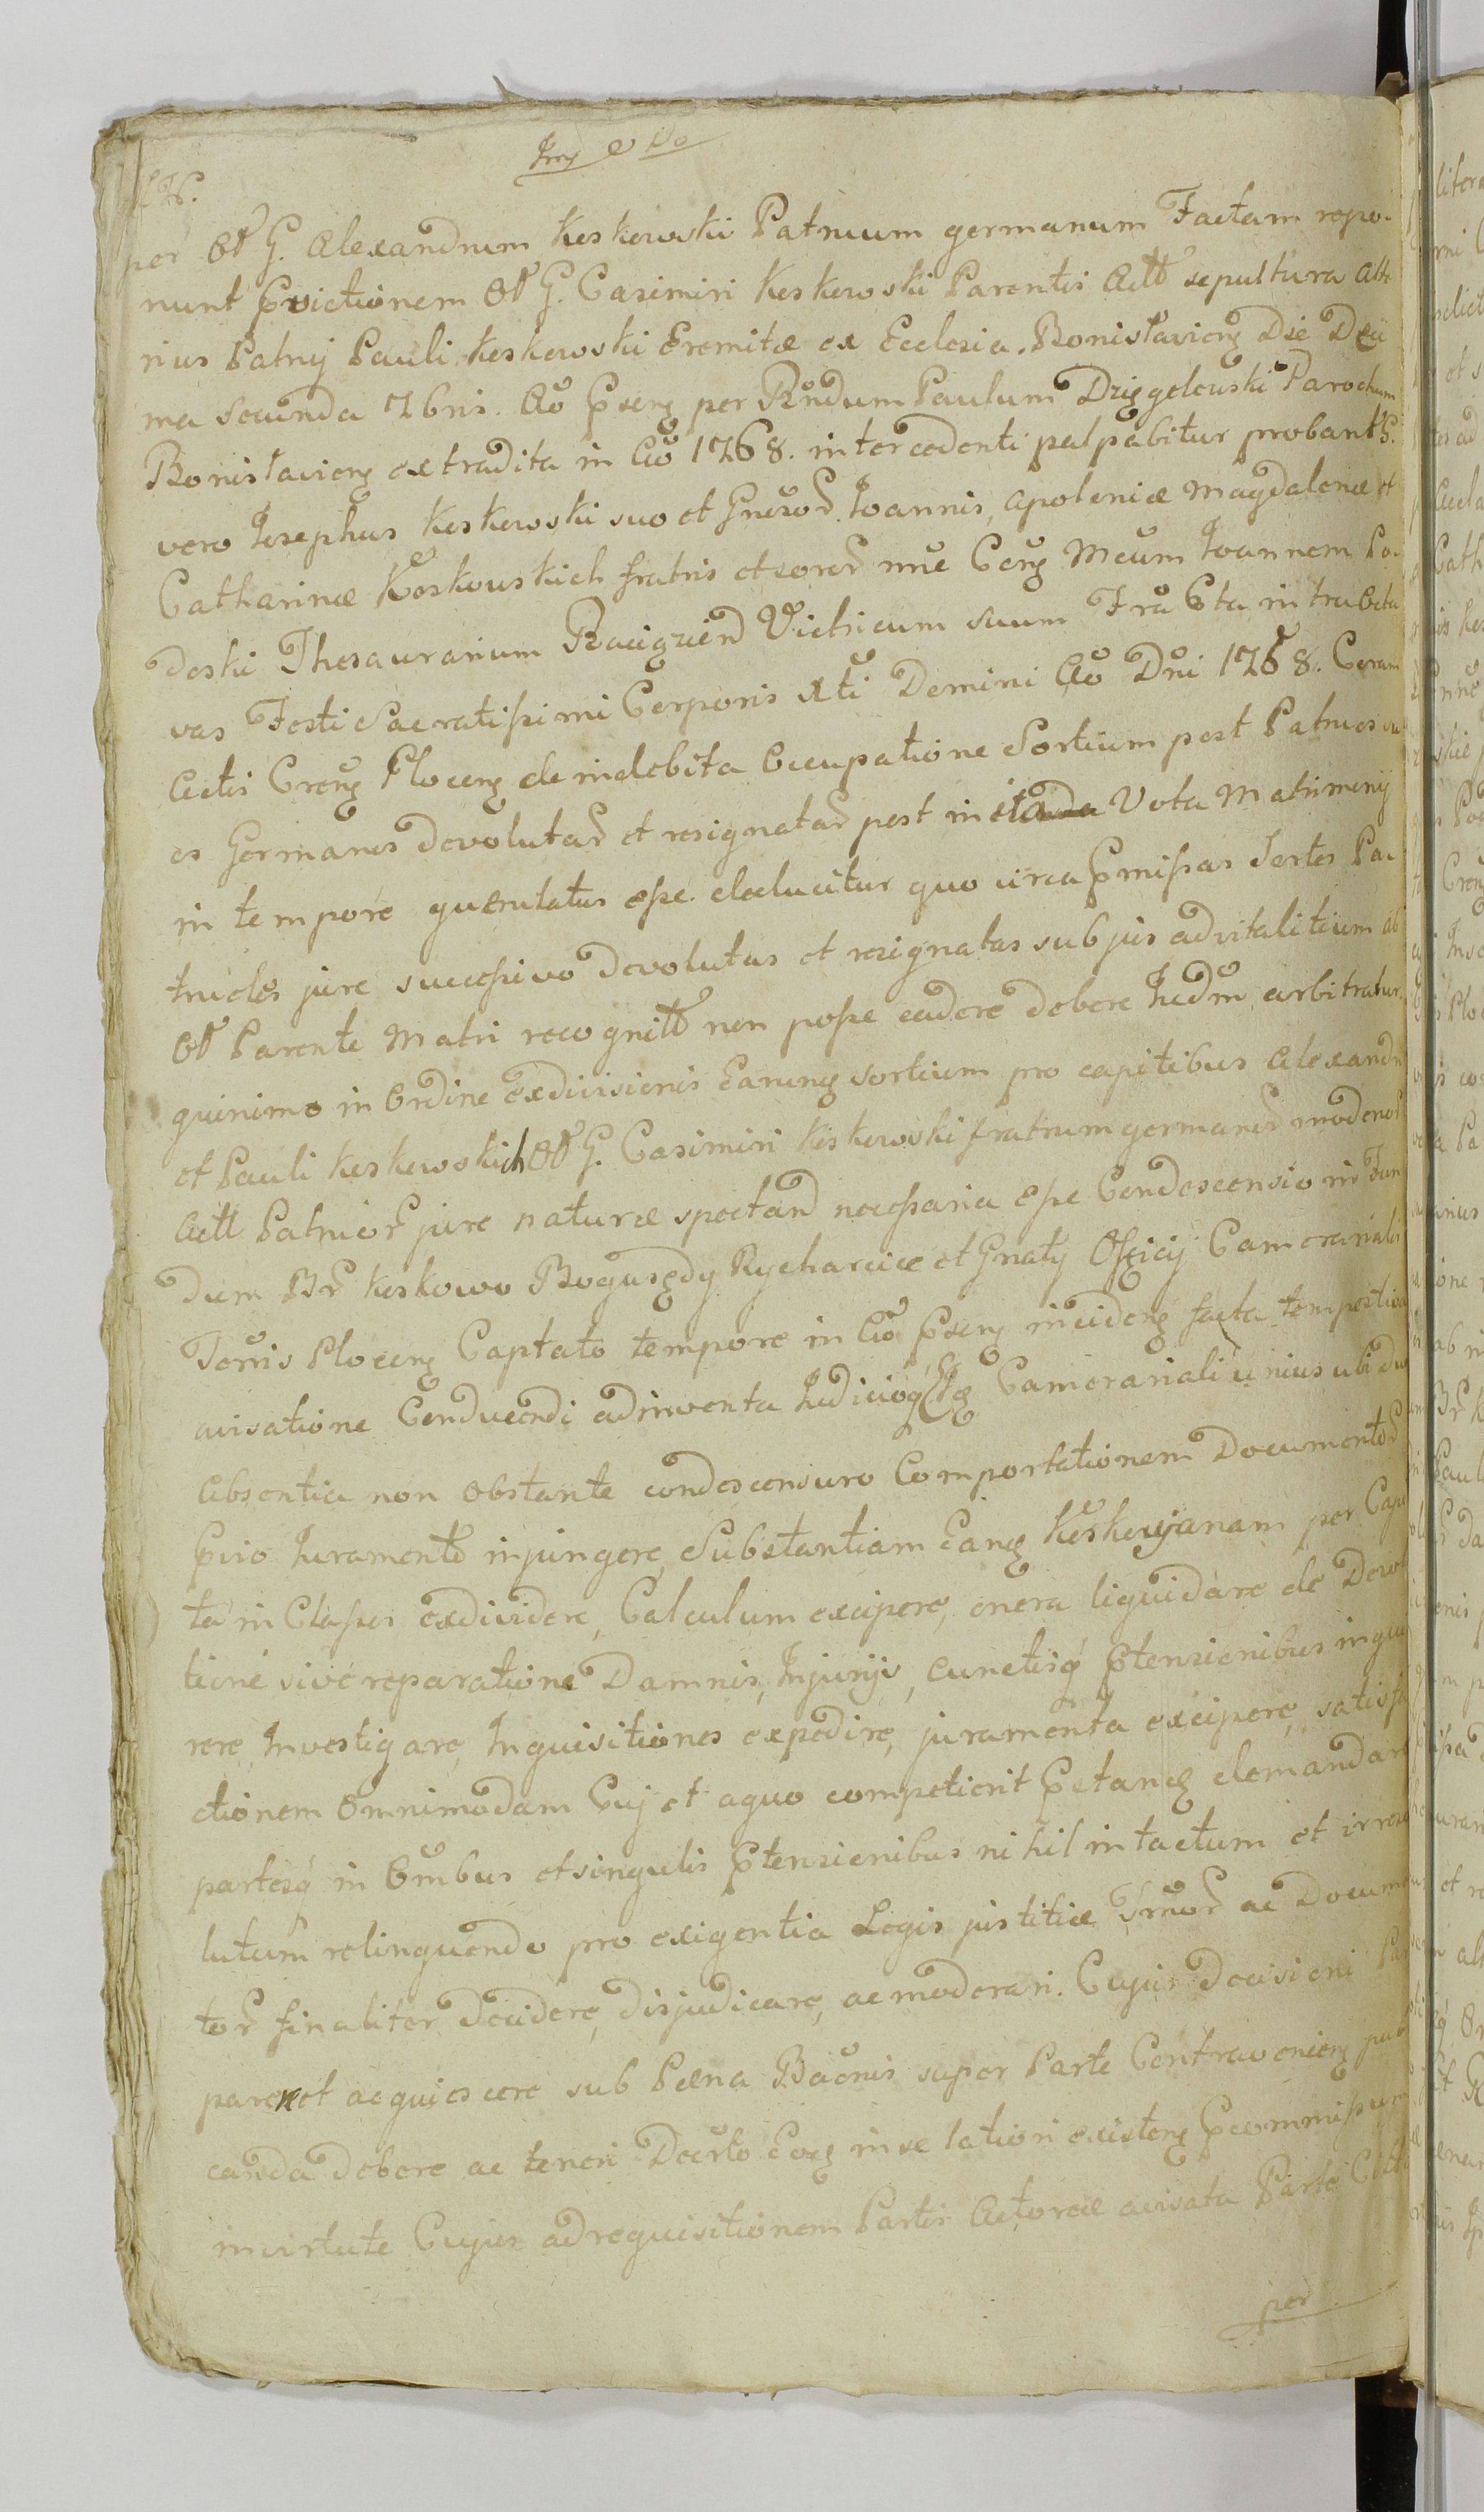 per Olt G. Alexandrum Keskowski Patruum germanum Factam repo-
nunt Evictionem Olt G. Casimiri Keskowski Parentis Actt sepultura Alte
rius Patruj Pauli Keskowski Eremitæ ex Ecclesia Bonisłavieng Die Deci
ma Secunda 7bris. Ao Pseng per Rndum Paulum Dzięgelewski Parochum
Bonisłavieng extradita in Ao 1768. intercedenti palpabitur probant G.
vero Josephus Keskowski suo et Gnesor. Joannis, Apoloniæ Magdalenæ et
Catharinæ Keskowskich fratris et soror nne Ceng Mcum Joannem Po-
doski Thesaurarium Raciązien Vitricum suum Fra 6ta intra Octa
vas Festi Sacratissimi Corporis Xti Domini Ao Dni 1768. Coram
Actis Creng Ploceng de indebita Occupatione Sortium post Patruos su
os Germanos devolutar et resignatar post in Vota Matrimonij
in tempore querulatus esse deducitur quo circa Pmissas Sortes Pa-
trueles jure successivo devolutas et resignatas sub jus advitalitium ab
Olt Parente Matri recognitt non posse cadere debere Judm arbitratur.
quinimo in Ordine exdivisionis Earung sortium pro capitibus Alexandri
et Pauli Keskowskich Olt G. Casimiri Keskowski fratrum germanor modernor
Actt Patruor jure naturæ spectan necessaria Esse Condescensio in Fun
dum Br Keskowo Boguszędy Rycharcice et Gnatj Officij Camerarialis
Terris Ploceng Captato tempore in Ao Pseng incideng facta tempestiva
avisatione Conducendi adinventa Judicioq Camerariali unius ubi du
Absentia non obstante condescensuro Comportationem Documentor
Pvio Juramento injungere, Substantiam Eang Keskovjanam per Capi
ta in Classes exdividere, Calculum excipere, onera liquidare de Devol
tione sive reparatione Damnis, Injurijs, cunctisq Ptensionibus inqui
rere, Investigare, Inquisitiones expedire, juramenta excipere, satisfa
ctionem Omnimodam Cuj et a quo competierit Pstang demandare
partesq in Ombus et singulis Ptensionibus nihil intactum et irreso
lutum relinquendo pro exigentia Legis justitiæ Jrmor ac Docume
tor finaliter Decidere, disjudicare, ac moderari. Cujus Decisioni Par
parere et acquiescere sub Pæna Baonis super Parte Contravenieng pub
canda debere ac teneri Decrto Eoq in se latiori existeng Pcommissum
in virtute Cujus ad requisitionem Partis Actoreæ avisata Parte Citt
per